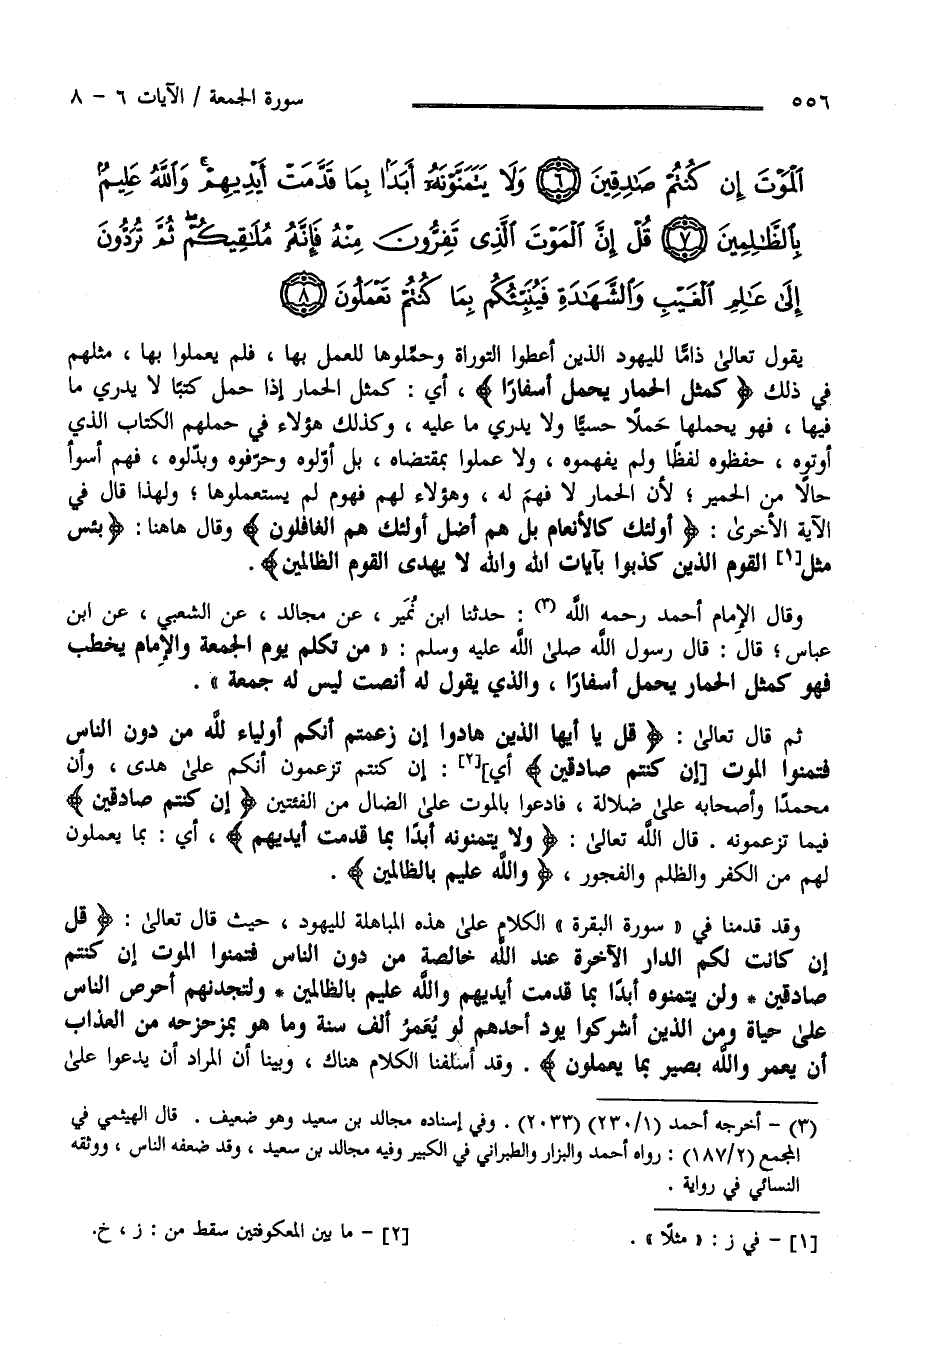 ٥٥٦ سورة الجمعة / الآيات ٦ - ٨
ٱلْمَوْتَ إِن كُنتُمْ صَٰدِقِينَ ٦ وَلَا يَتَمَنَّوْنَهُۥٓ أَبَدًۢا بِمَا قَدَّمَتْ أَيْدِيهِمْ ۚ وَٱللَّهُ عَلِيمٌۢ
بِٱلظَّٰلِمِينَ ٧ قُلْ إِنَّ ٱلْمَوْتَ ٱلَّذِى تَفِرُّونَ مِنْهُ فَإِنَّهُۥ مُلَٰقِيكُمْ ۖ ثُمَّ تُرَدُّونَ
إِلَىٰ عَٰلِمِ ٱلْغَيْبِ وَٱلشَّهَٰدَةِ فَيُنَبِّئُكُم بِمَا كُنتُمْ تَعْمَلُونَ ٨
يقول تعالىٰ ذامًّا لليهود الذين أعطوا التوراة وحمِّلوها للعمل بها ، فلم يعملوا بها ، مثلهم
في ذلك ﴿ كمثل الحمار يحمل أسفارًا ﴾ ، أي : كمثل الحمار إذا حمل كتبًا لا يدري ما
فيها ، فهو يحملها حَملًا حسيًّا ولا يدري ما عليه ، وكذلك هؤلاء في حملهم الكتاب الذي
أوتوه ، حفظوه لفظًا ولم يفهموه ، ولا عملوا بمقتضاه ، بل أوّلوه وحرّفوه وبدّلوه ، فهم أسوأ
حالًا من الحمير ؛ لأن الحمار لا فهمَ له ، وهؤلاء لهم فهوم لم يستعملوها ؛ ولهذا قال في
الآية الأخرىٰ : ﴿ أولئك كالأنعام بل هم أضل أولئك هم الغافلون ﴾ وقال هاهنا : ﴿ بئس
مثل[١] القوم الذين كذبوا بآيات الله والله لا يهدى القوم الظالمين﴾ .
وقال الإمام أحمد رحمه اللَّه (٣) : حدثنا ابن نُمَير ، عن مجالد ، عن الشعبي ، عن ابن
عباس؛ قال : قال رسول اللَّه صلىٰ اللَّه عليه وسلم : « من تكلم يوم الجمعة والإمام يخطب
فهو كمثل الحمار يحمل أسفارًا ، والذي يقول له أنصت ليس له جمعة » .
ثم قال تعالىٰ : ﴿ قل يا أيها الذين هادوا إن زعمتم أنكم أولياء للَّه من دون الناس
فتمنوا الموت [إن كنتم صادقين ﴾ أي][٢] : إن كنتم تزعمون أنكم علىٰ هدى ، وأن
محمدًا وأصحابه علىٰ ضلالة ، فادعوا بالموت علىٰ الضال من الفئتين ﴿ إن كنتم صادقين ﴾
فيما تزعمونه . قال اللَّه تعالىٰ : ﴿ ولا يتمنونه أبدًا بما قدمت أيديهم ﴾ ، أي : بما يعملون
لهم من الكفر والظلم والفجور ، ﴿ واللَّه عليم بالظالمين ﴾ .
وقد قدمنا في « سورة البقرة » الكلام علىٰ هذه المباهلة لليهود ، حيث قال تعالىٰ : ﴿ قل
إن كانت لكم الدار الآخرة عند اللَّه خالصة من دون الناس فتمنوا الموت إن كنتم
صادقين * ولن يتمنوه أبدًا بما قدمت أيديهم واللَّه عليم بالظالمين * ولتجدنهم أحرص الناس
علىٰ حياة ومن الذين أشركوا يود أحدهم لو يُعَمرُ ألف سنة وما هو بمزحزحه من العذاب
أن يعمر واللَّه بصير بما يعملون ﴾ . وقد أسلفنا الكلام هناك ، وبينا أن المراد أن يدعوا علىٰ
(٣) - أخرجه أحمد (٢٣٠/١) (٢٠٣٣) . وفي إسناده مجالد بن سعيد وهو ضعيف . قال الهيثمي في
المجمع (١٨٧/٢) : رواه أحمد والبزار والطبراني في الكبير وفيه مجالد بن سعيد ، وقد ضعفه الناس ، ووثقه
النسائي في رواية .
[١] - في ز : « مثلًا » . [٢] - ما بين المعكوفتين سقط من : ز ، خ.